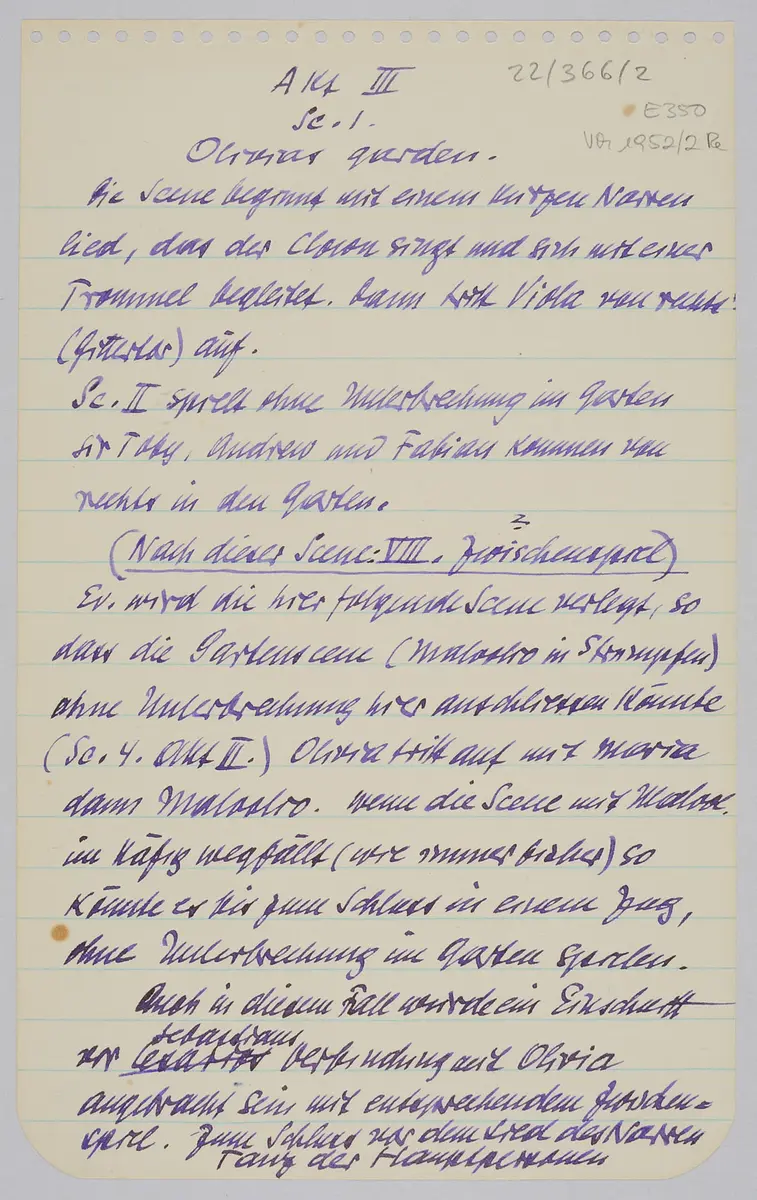 Akt III
22/366/2
Sc. 1.
E350
Olivias garden.
1952/2
Die Scene beginnt mit einem kurzen Narren
lied, das der Clown singt und sich mit einer
Trommel begleitet. Dann tritt Viola von rechts
(Gittertor) auf.
Sc. II spielt ohne Unterbrechung im Garten
Sir Toby, Andrew und Fabian kommen von
rechts in den Garten.
(Nach dieser Scene: VIII. Zwischenspiel)
Ev. wird die hier folgende Scene verlegt, so
dass die Gartenscene (Malvolio in Strümpfen)
ohne Unterbrechung hier anschliessen könnte
(Sc. 4. Akt III.) Olivia tritt auf mit Maria
dann Malvolio. Wenn die Scene mit Malvol.
im Käfig wegfällt (wie immer bisher) so
könnte es bis zum Schluss in einem Zug,
ohne Unterbrechung im Garten spielen.
Auch in diesem Fall würde ein Einschnitt
Sebastians
vor Cesarios Verbindung mit Olivia
angebracht sein mit entsprechendem Zwischen=
spiel. Zum Schluss vor dem Lied des Narren
Tanz der Hauptpersonen